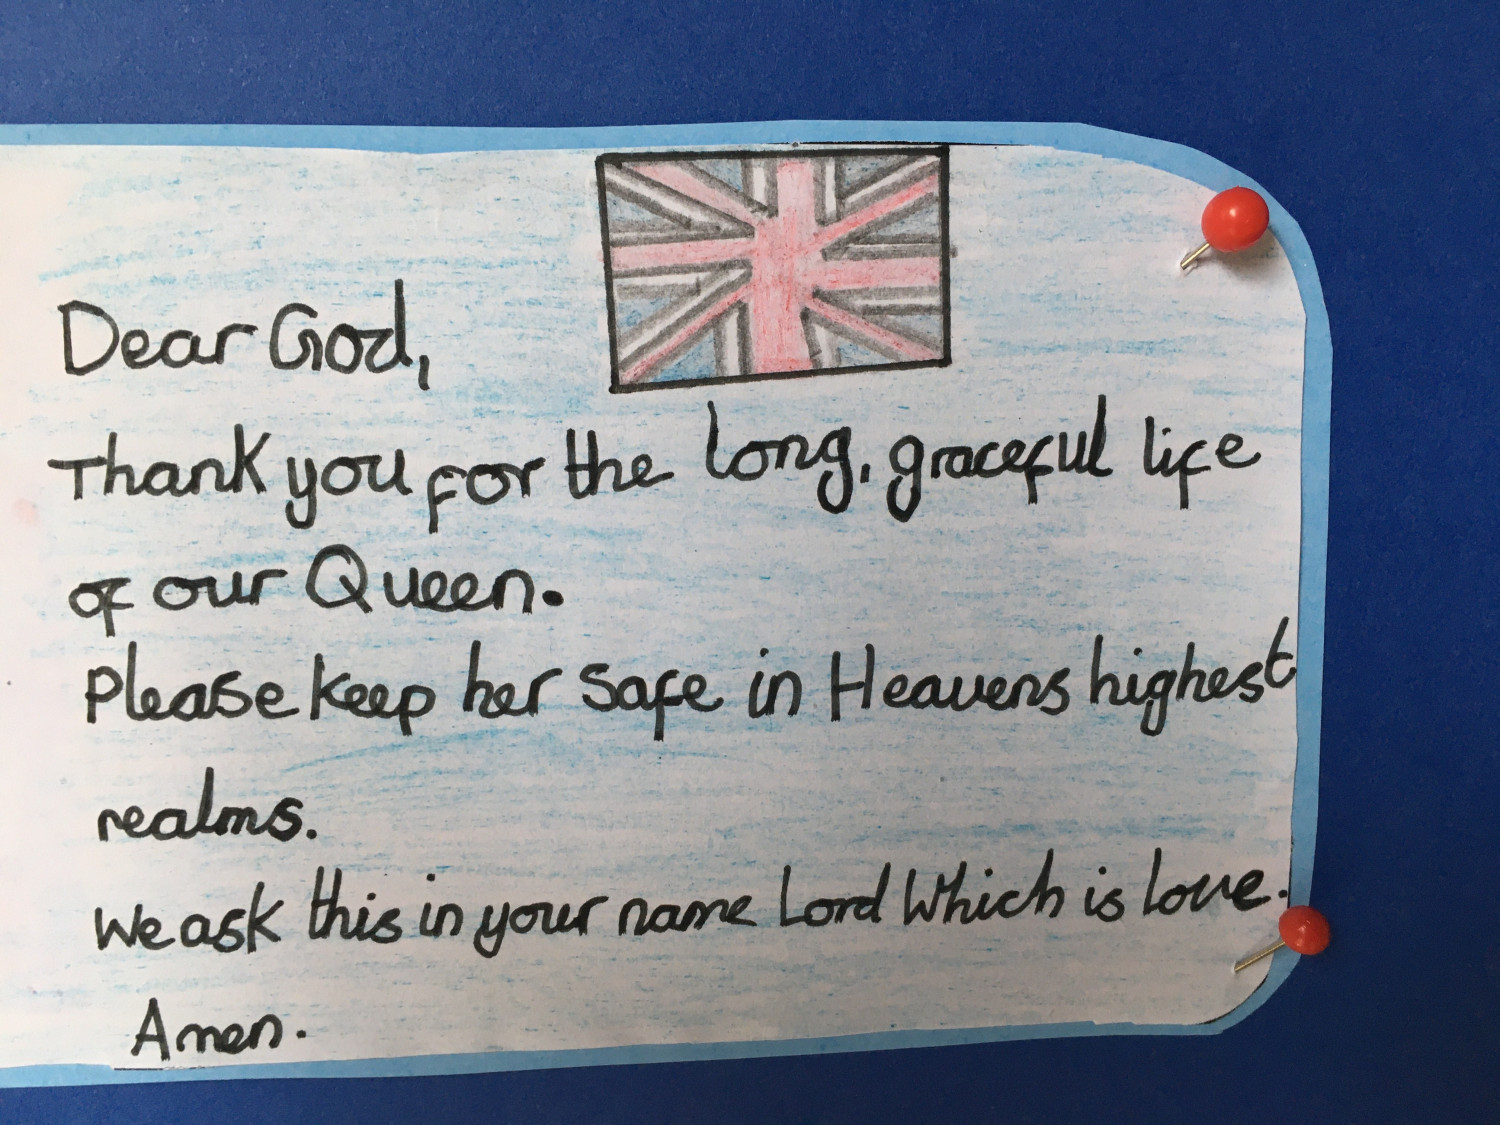 Dear God,
Thank you for the long, graceful life
of our Queen.
Please keep her safe in Heavens highest
realms.
We ask this in your name Lord Which is love.
Amen.